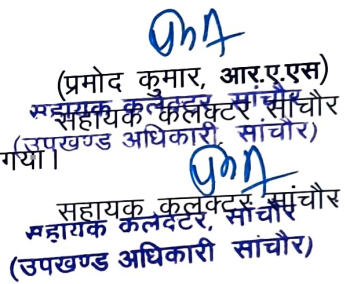 (प्रमोद कुमार, आर.ए.एस)
सहायक कलक्टर सांचौर
सहायक कलक्टर, सांचौर
(उपखण्ड अधिकारी, सांचौर)
गया।
सहायक कलक्टर सांचौर
सहायक कलक्टर, सांचौर
(उपखण्ड अधिकारी सांचौर)